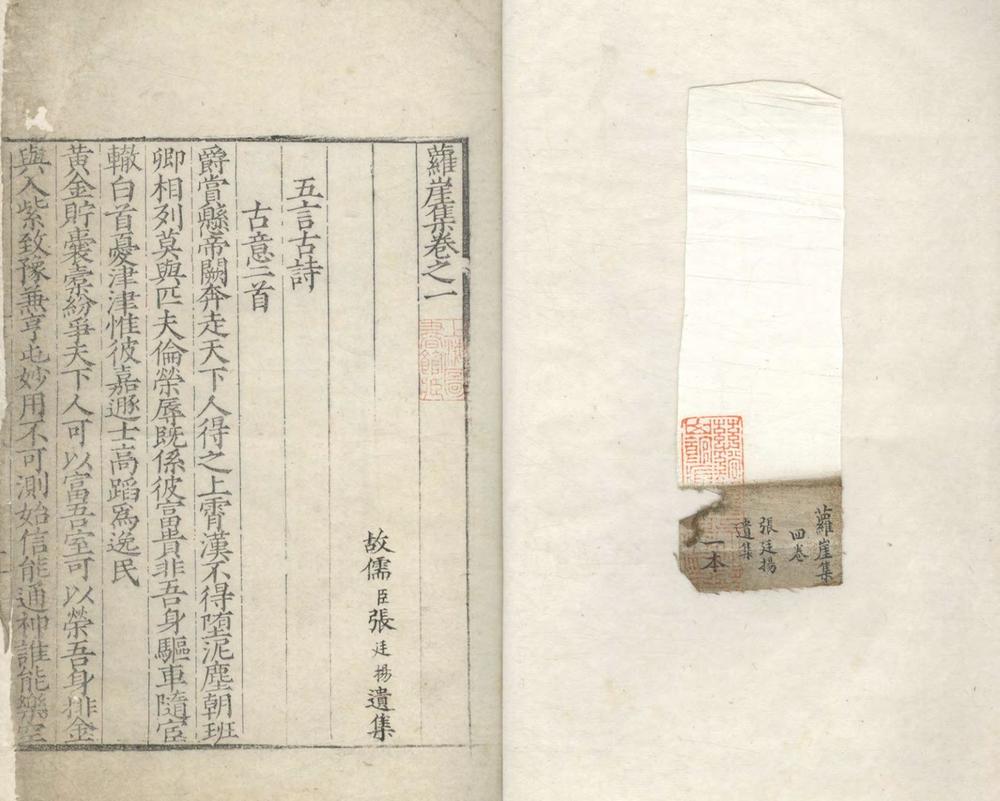 蘿崖集
四卷
張廷揚
遺集
一本
蘿崖集卷之一
上海圖書館藏
故儒臣張廷揚遺集
五言古詩
古意二首
爵賞懸帝闕奔走天下人得之上霄漢不得墮泥塵朝班
卿相列莫與匹夫倫榮辱既係彼富貴非吾身驅車隨宦
轍白首憂津津惟彼嘉遯士高蹈爲逸民
黃金貯囊橐紛爭天下人可以富吾室可以榮吾身排金
與入紫致豫兼亨屯妙用不可測始信能通神誰能樂